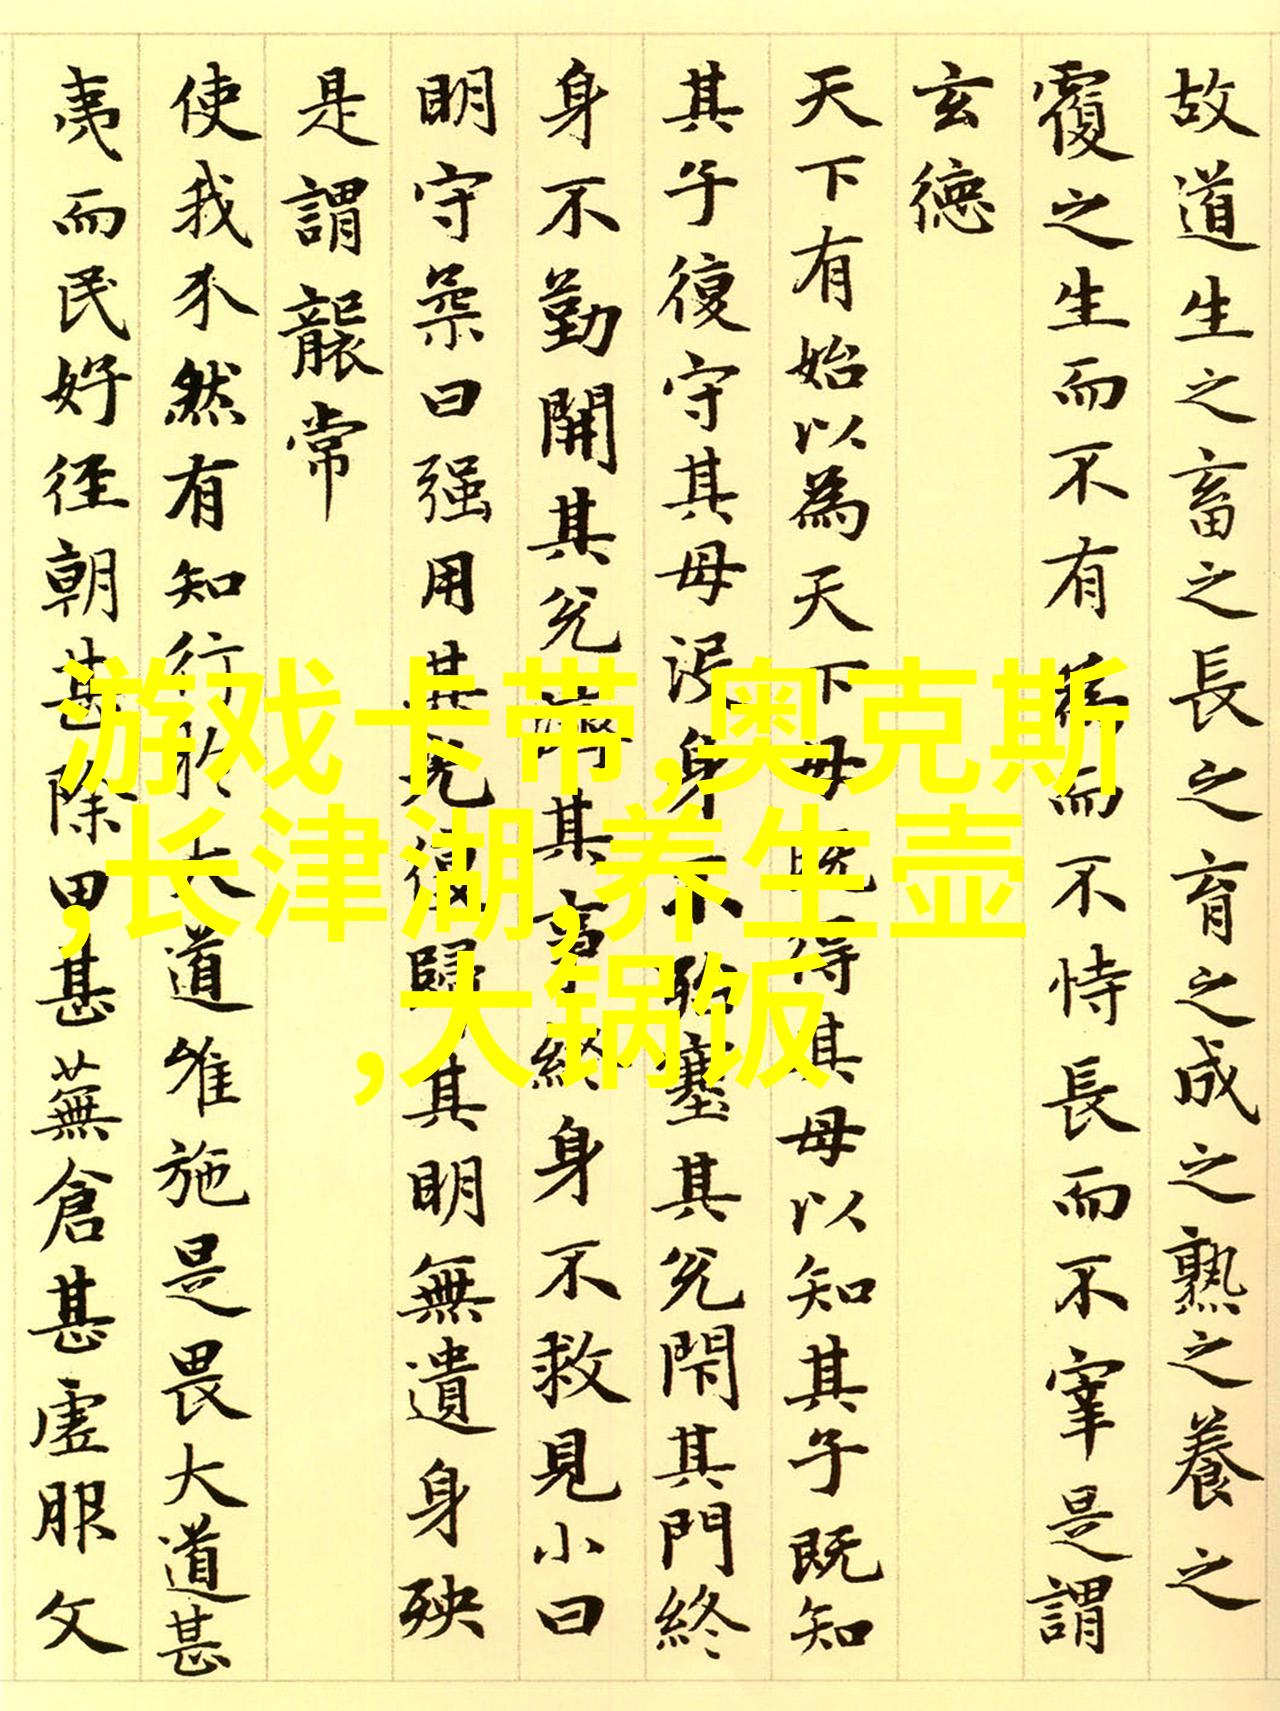 故道生之畜之長之育之成之熟之養之
覆之生而不有為而不恃長而不宰是謂
玄德
天下有始以為天下母既得其母以知其子既知
其子復守其母沒身不殆塞其兌閇其門終
身不勤開其兌濟其事終身不救見小曰
明守柔曰强用其光復歸其明無遺身殃
是謂襲常
使我介然有知行於大道唯施是畏大道甚
夷而民好徑朝甚除田甚蕪倉甚虛服文
游戏卡带,奥克斯
,长津湖,养生壶
,大锅饭